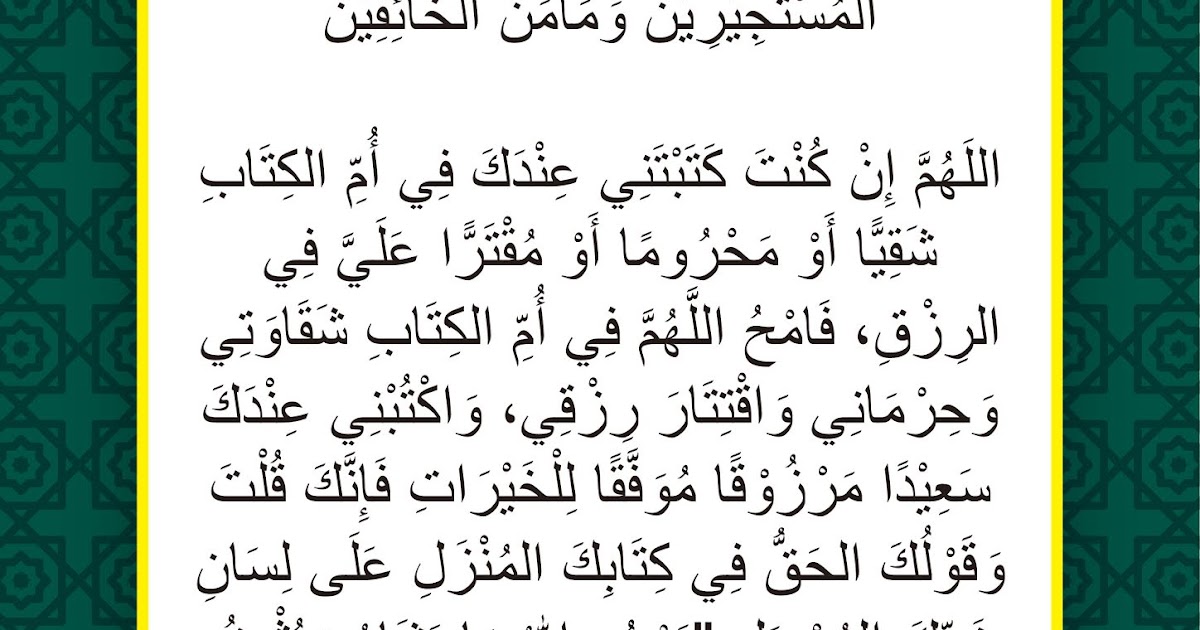 المُسْتَجِيرِينَ وَمَأْمَنَ الْخَائِفِينَ
اللَهُمَّ إِنْ كُنْتَ كَتَبْتَنِي عِنْدَكَ فِي أُمِّ الكِتَابِ
شَقِيًّا أَوْ مَحْرُومًا أَوْ مُقْتَرًّا عَلَيَّ فِي
الرِزْقِ، فَامْحُ اللَّهُمَّ فِي أُمِّ الكِتَابِ شَقَاوَتِي
وَحِرْمَانِي وَاقْتِتَارَ رِزْقِي، وَاكْتُبْنِي عِنْدَكَ
سَعِيْدًا مَرْزُوْقًا مُوَفَّقًا لِلْخَيْرَاتِ فَإِنَّكَ قُلْتَ
وَقَوْلُكَ الحَقُّ فِي كِتَابِكَ المُنْزَلِ عَلَى لِسَانِ